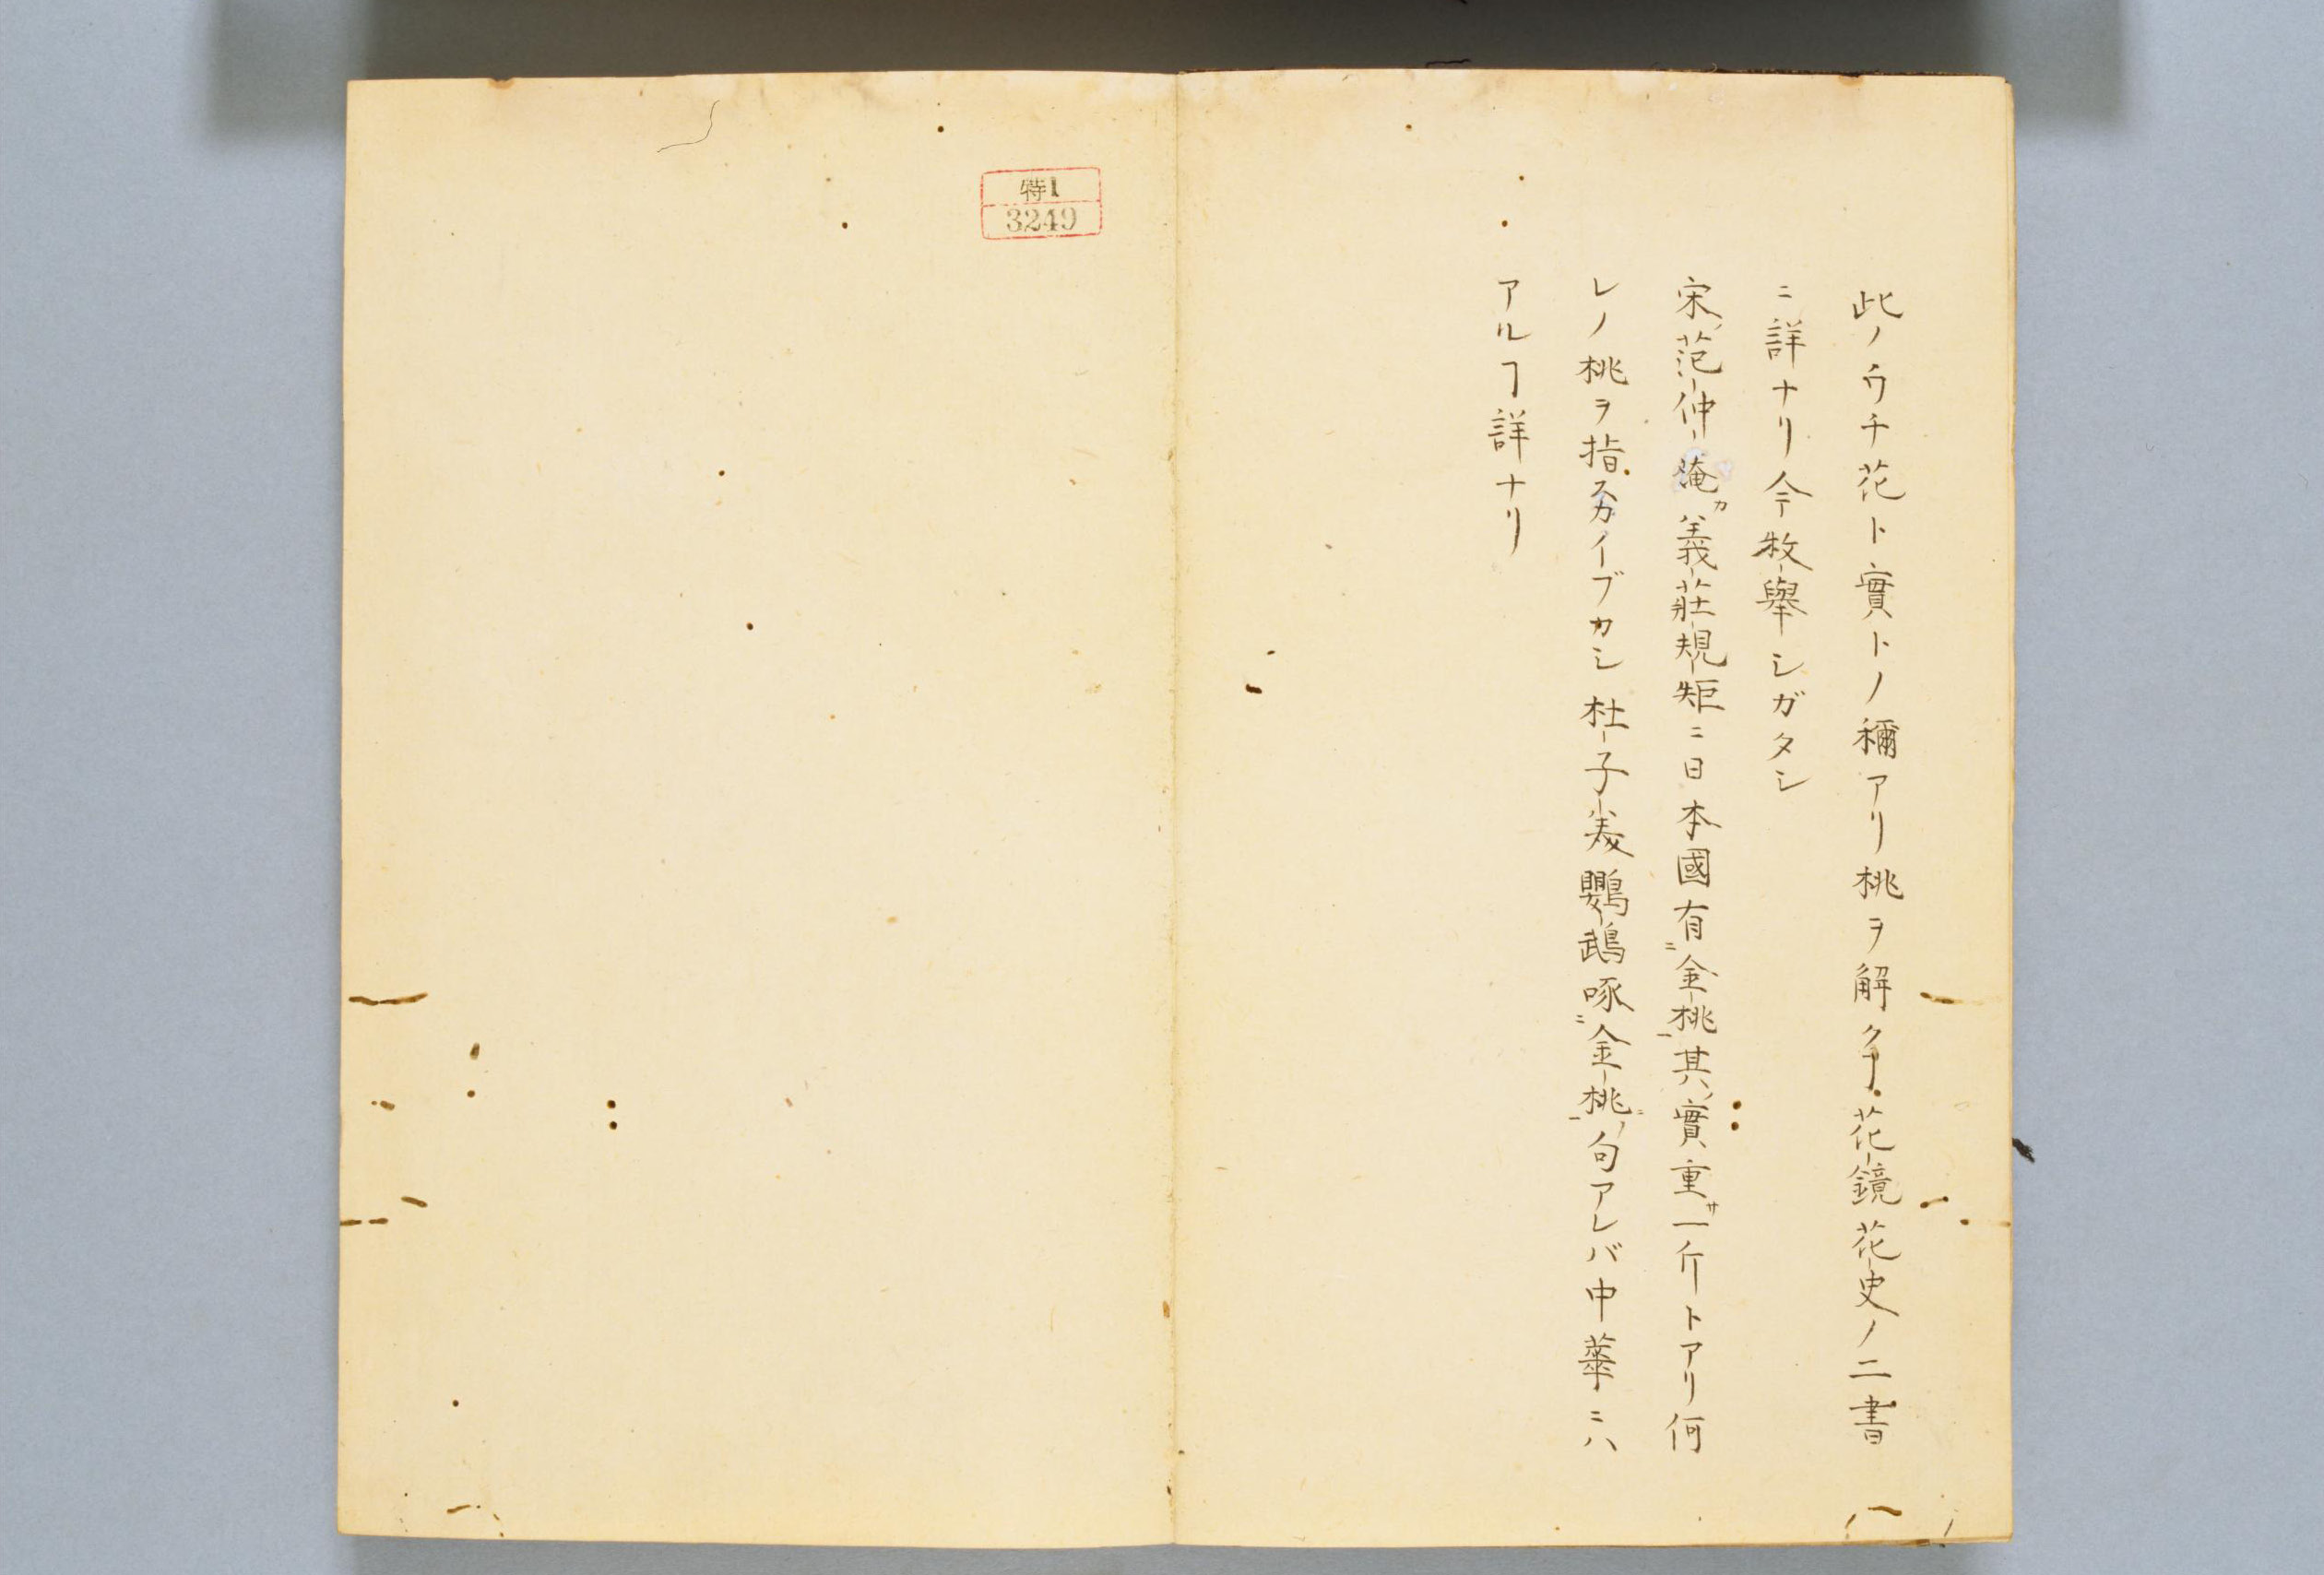 此ノウチ花ト實トノ稱アリ桃ヲ解ク𪜈花鏡花史ノ二書
ニ詳ナリ今枚舉シガタシ
宋ノ范仲淹カ義莊規矩ニ日本國有ニ金桃一其ノ實重サ一斤トアリ何
レノ桃ヲ指スカイブカシ杜子美鸚鵡啄ニ金桃一ノ句アレバ中華ニハ
アルヿ詳ナリ
特1
3249